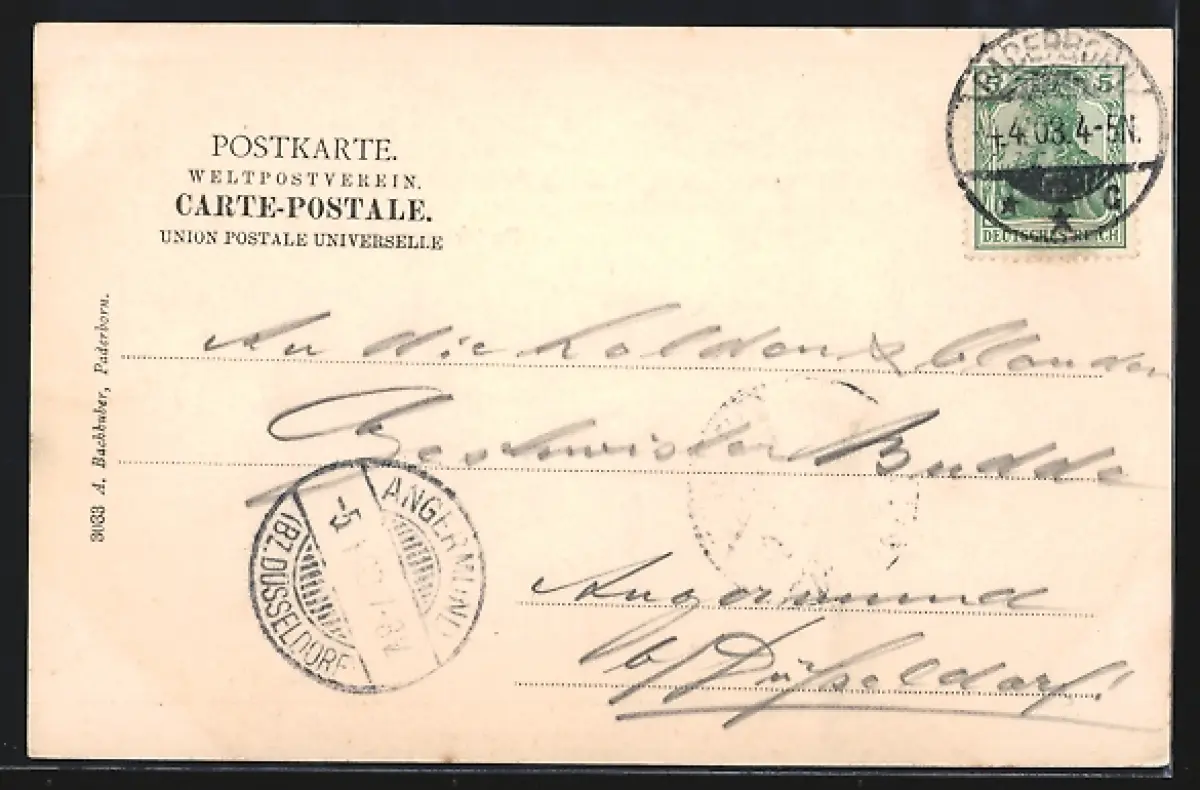 POSTKARTE.
WELTPOSTVEREIN.
CARTE-POSTALE.
UNION POSTALE UNIVERSELLE
PADERBORN
4.4.03.4-5N.
* * C
5 5
DEUTSCHES REICH
3033 A. Bachhuber, Paderborn.
An die holden & blonden
Geschwister Budde
Angermund
b/ Düßeldorf!
ANGERMUND
(BZ. DÜSSELDORF
-5
7-8V